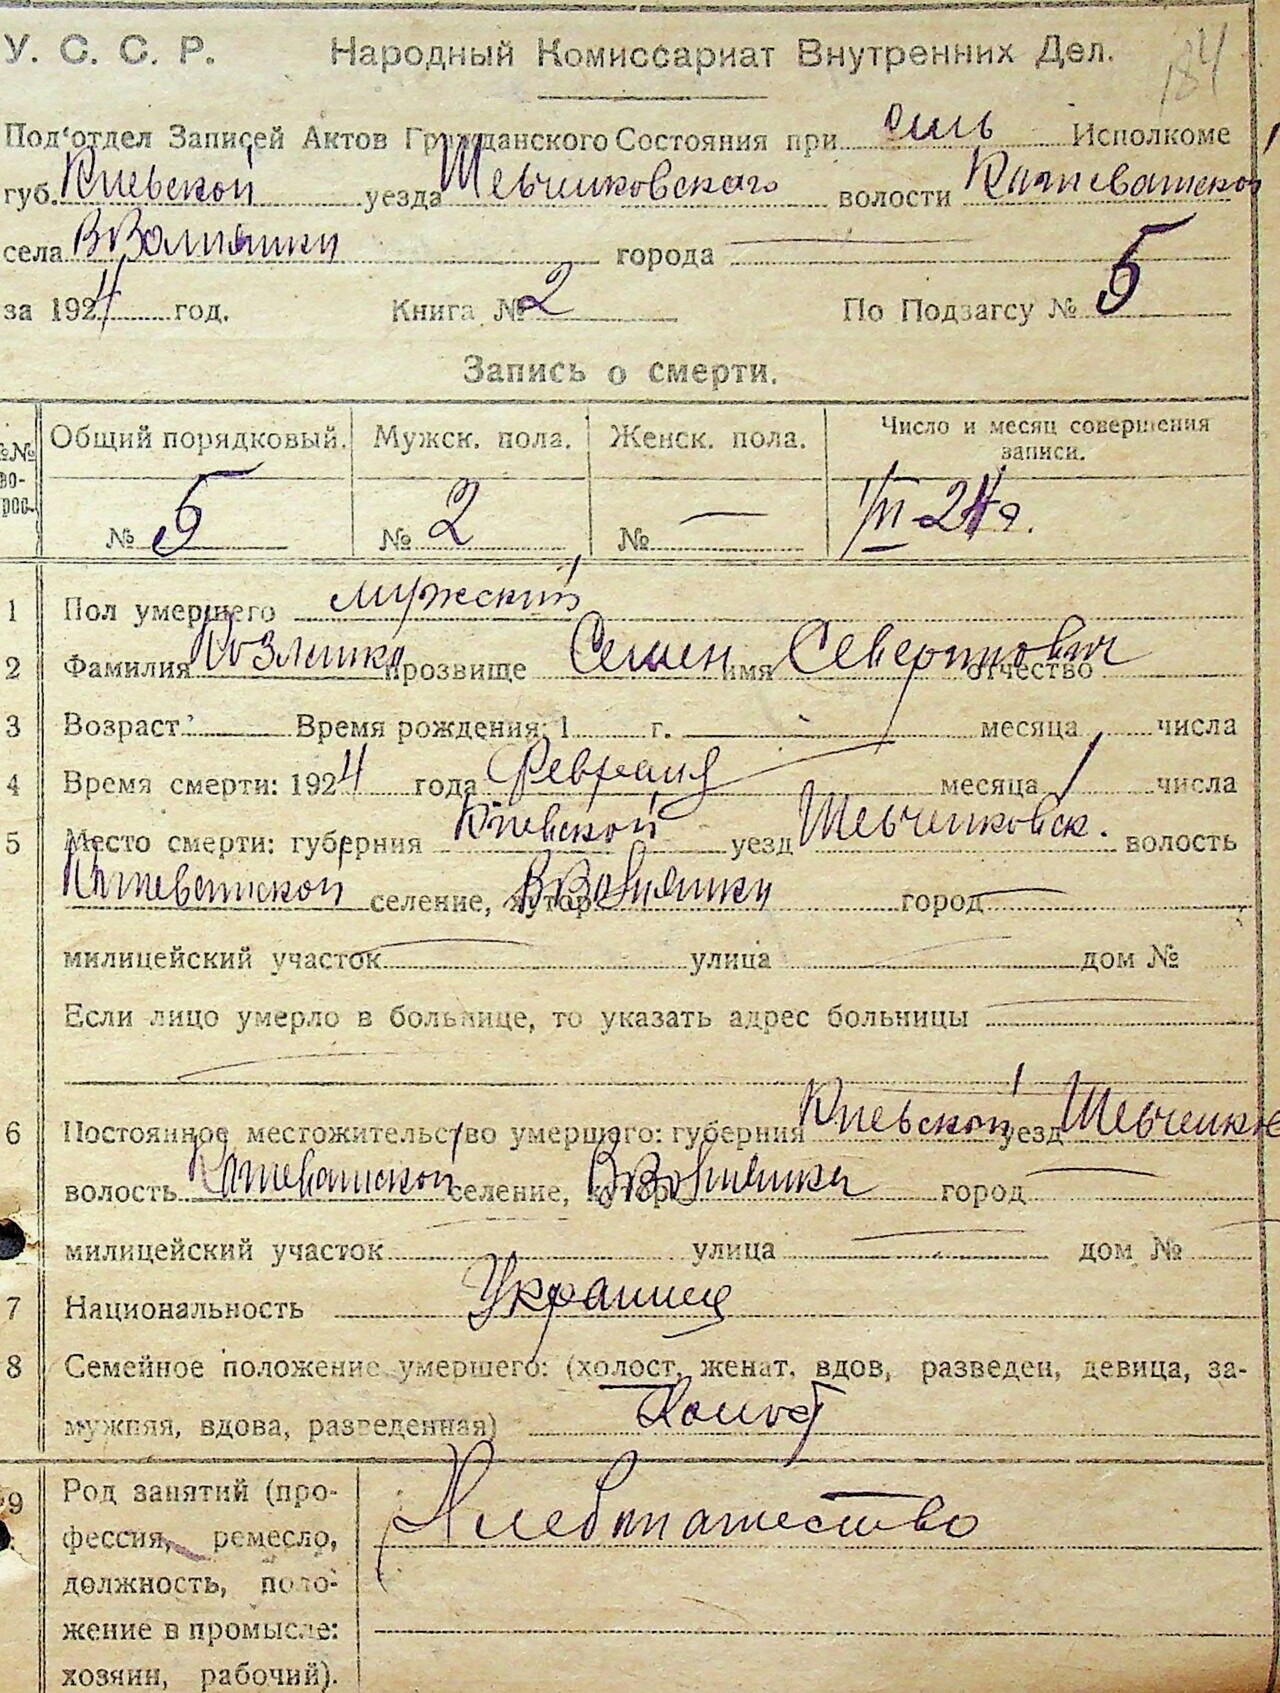 184
У. С. С. Р. Народный Комиссариат Внутренних Дел.
Под'отдел Записей Актов Гражданского Состояния при сель Исполкоме
губ. Киевской уезда Шевченковскаго волости
села города
за 1924 год. Книга № 2 По Подзагсу № 5
Запись о смерти.
№№ во- рос. Общий порядковый. Мужск. пола. Женск. пола. Число и месяц совершения записи.
№ 5 № 2 № — 1/III-24 г.
1 Пол умершего мужский
2 Фамилия прозвище Семен имя Северинович отчество
3 Возраст Время рождения: 1 г. месяца числа
4 Время смерти: 1924 года Февраля месяца 1 числа
5 Место смерти: губерния Киевской уезд Шевченковск. волость
селение, хутор город —
милицейский участок — улица — дом №
Если лицо умерло в больнице, то указать адрес больницы —
6 Постоянное местожительство умершего: губерния Киевской уезд Шевченков
волость селение, хутор город —
милицейский участок улица — дом № —
7 Национальность Украинец
8 Семейное положение умершего: (холост, женат, вдов, разведен, девица, за-
мужняя, вдова, разведенная) Холост
9 Род занятий (про- Хлебопашество
фессия, ремесло,
должность, поло-
жение в промысле:
хозяин, рабочий).